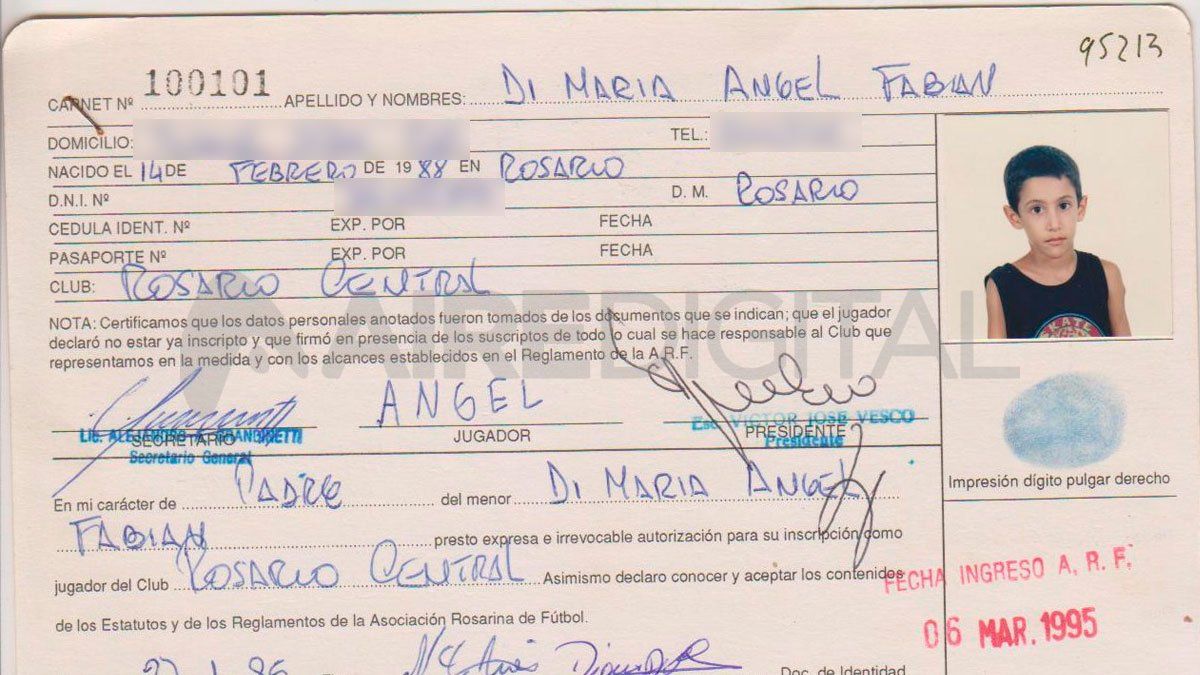 95213
CARNET Nº 100101 APELLIDO Y NOMBRES: DI MARIA ANGEL FABIAN
DOMICILIO: TEL.:
NACIDO EL 14 DE FEBRERO DE 1988 EN ROSARIO
D.N.I. Nº D. M. ROSARIO
CEDULA IDENT. Nº EXP. POR FECHA
PASAPORTE Nº EXP. POR FECHA
CLUB: ROSARIO CENTRAL
NOTA: Certificamos que los datos personales anotados fueron tomados de los documentos que se indican; que el jugador
declaró no estar ya inscripto y que firmó en presencia de los suscriptos de todo lo cual se hace responsable al Club que
representamos en la medida y con los alcances establecidos en el Reglamento de la A.R.F.
AIREDIGITAL
ANGEL
LIC. ALEJANDRO Esc. VICTOR JOSE VESCO
SECRETARIO JUGADOR PRESIDENTE
Secretario General Presidente
Impresión dígito pulgar derecho
En mi carácter de PADRE del menor DI MARIA ANGEL
FABIAN presto expresa e irrevocable autorización para su inscripción como
jugador del Club ROSARIO CENTRAL Asimismo declaro conocer y aceptar los contenidos
de los Estatutos y de los Reglamentos de la Asociación Rosarina de Fútbol.
FECHA INGRESO A. R. F.
06 MAR. 1995
Doc. de Identidad